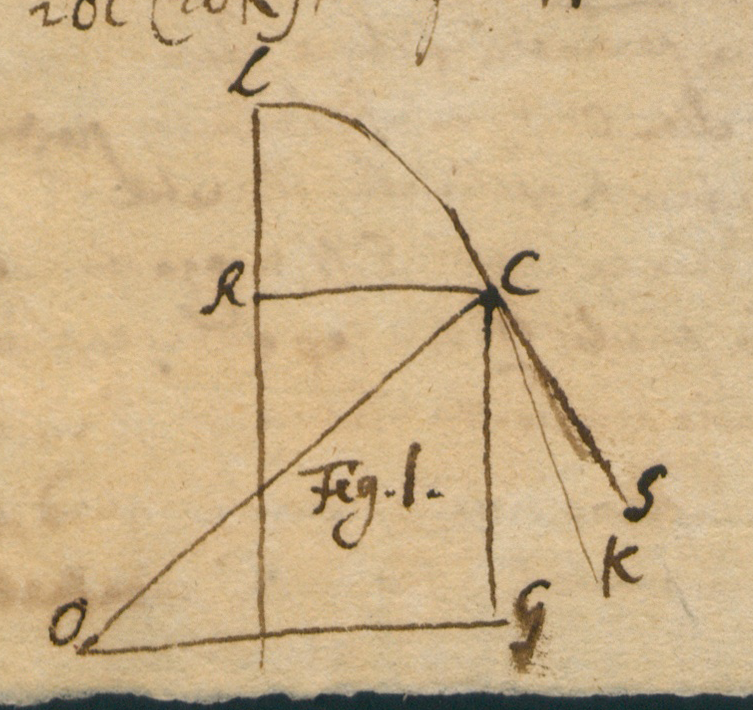 L
R
C
Fig. 1.
S
K
O
G